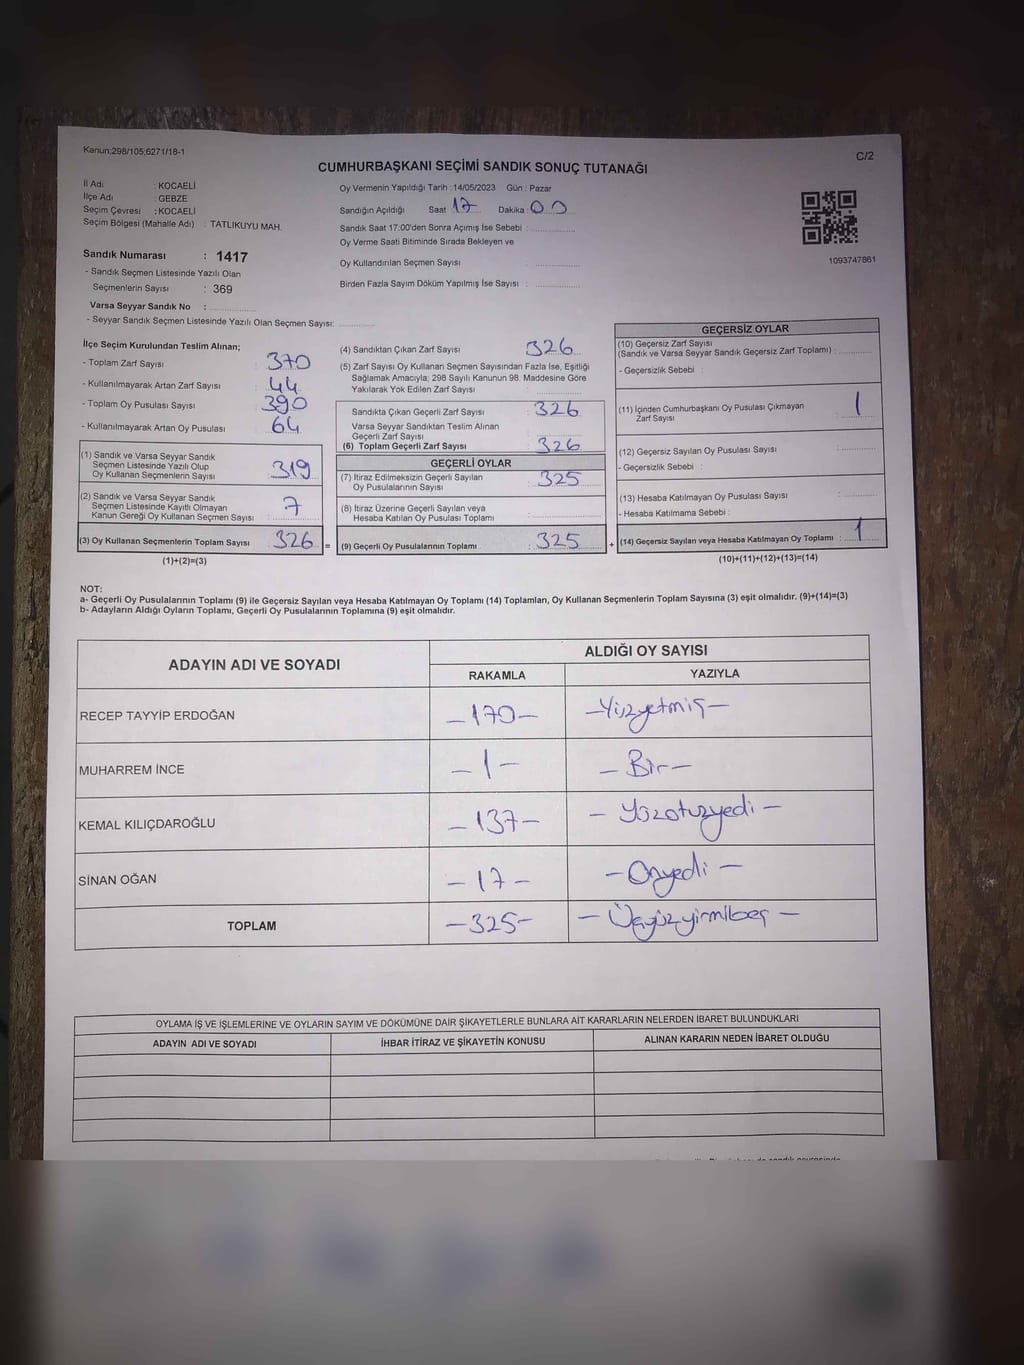 Kanun:298/105;6271/18-1
C/2
CUMHURBAŞKANI SEÇİMİ SANDIK SONUÇ TUTANAĞI
İl Adı : KOCAELİ
İlçe Adı : GEBZE
Seçim Çevresi : KOCAELİ
Seçim Bölgesi (Mahalle Adı) : TATLIKUYU MAH.
Sandık Numarası : 1417
- Sandık Seçmen Listesinde Yazılı Olan
Seçmenlerin Sayısı : 369
Varsa Seyyar Sandık No :
- Seyyar Sandık Seçmen Listesinde Yazılı Olan Seçmen Sayısı:
Oy Vermenin Yapıldığı Tarih : 14/05/2023 Gün : Pazar
Sandığın Açıldığı Saat 17 Dakika : 00
Sandık Saat 17:00'den Sonra Açımış İse Sebebi :
Oy Verme Saati Bitiminde Sırada Bekleyen ve
Oy Kullandırılan Seçmen Sayısı
Birden Fazla Sayım Döküm Yapılmış İse Sayısı :
1093747861
İlçe Seçim Kurulundan Teslim Alınan;
- Toplam Zarf Sayısı 370
- Kullanılmayarak Artan Zarf Sayısı : 44
- Toplam Oy Pusulası Sayısı : 390
- Kullanılmayarak Artan Oy Pusulası 64
(1) Sandık ve Varsa Seyyar Sandık
Seçmen Listesinde Yazılı Olup
Oy Kullanan Seçmenlerin Sayısı : 319
(2) Sandık ve Varsa Seyyar Sandık
Seçmen Listesinde Kayıtlı Olmayan
Kanun Gereği Oy Kullanan Seçmen Sayısı : 7
(3) Oy Kullanan Seçmenlerin Toplam Sayısı : 326 =
(1)+(2)=(3)
(4) Sandıktan Çıkan Zarf Sayısı 326
(5) Zarf Sayısı Oy Kullanan Seçmen Sayısından Fazla İse, Eşitliği
Sağlamak Amacıyla; 298 Sayılı Kanunun 98. Maddesine Göre
Yakılarak Yok Edilen Zarf Sayısı
Sandıkta Çıkan Geçerli Zarf Sayısı : 326
Varsa Seyyar Sandıktan Teslim Alınan
Geçerli Zarf Sayısı
(6) Toplam Geçerli Zarf Sayısı : 326
GEÇERLİ OYLAR
(7) İtiraz Edilmeksizin Geçerli Sayılan
Oy Pusulalarının Sayısı : 325
(8) İtiraz Üzerine Geçerli Sayılan veya
Hesaba Katılan Oy Pusulası Toplamı :
(9) Geçerli Oy Pusulalarının Toplamı : 325 +
GEÇERSİZ OYLAR
(10) Geçersiz Zarf Sayısı
(Sandık ve Varsa Seyyar Sandık Geçersiz Zarf Toplamı) :
- Geçersizlik Sebebi :
(11) İçinden Cumhurbaşkanı Oy Pusulası Çıkmayan
Zarf Sayısı : 1
(12) Geçersiz Sayılan Oy Pusulası Sayısı
- Geçersizlik Sebebi :
(13) Hesaba Katılmayan Oy Pusulası Sayısı
- Hesaba Katılmama Sebebi :
(14) Geçersiz Sayılan veya Hesaba Katılmayan Oy Toplamı : 1
(10)+(11)+(12)+(13)=(14)
NOT:
a- Geçerli Oy Pusulalarının Toplamı (9) ile Geçersiz Sayılan veya Hesaba Katılmayan Oy Toplamı (14) Toplamları, Oy Kullanan Seçmenlerin Toplam Sayısına (3) eşit olmalıdır. (9)+(14)=(3)
b- Adayların Aldığı Oyların Toplamı, Geçerli Oy Pusulalarının Toplamına (9) eşit olmalıdır.
ADAYIN ADI VE SOYADI
ALDIĞI OY SAYISI
RAKAMLA YAZIYLA
RECEP TAYYİP ERDOĞAN -170- -Yüzyetmiş-
MUHARREM İNCE -1- -Bir-
KEMAL KILIÇDAROĞLU -137- -Yüzotuzyedi-
SİNAN OĞAN -17- -Onyedi-
TOPLAM -325- -Üçyüzyirmibeş-
OYLAMA İŞ VE İŞLEMLERİNE VE OYLARIN SAYIM VE DÖKÜMÜNE DAİR ŞİKAYETLERLE BUNLARA AİT KARARLARIN NELERDEN İBARET BULUNDUKLARI
ADAYIN ADI VE SOYADI İHBAR İTİRAZ VE ŞİKAYETİN KONUSU ALINAN KARARIN NEDEN İBARET OLDUĞU